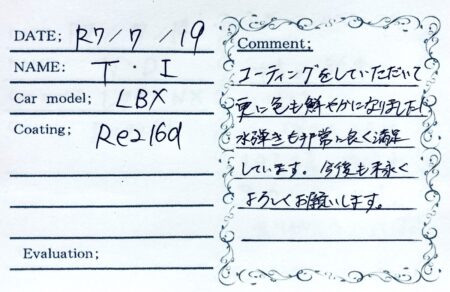 DATE; R7/7/19
NAME: T・I
Car model; LBX
Coating; Re216d
Evaluation;
Comment;
コーティングをしていただいて
更に色も鮮やかになりました!
水弾きも非常に良く満足
しています。今後も末永く
よろしくお願いします。